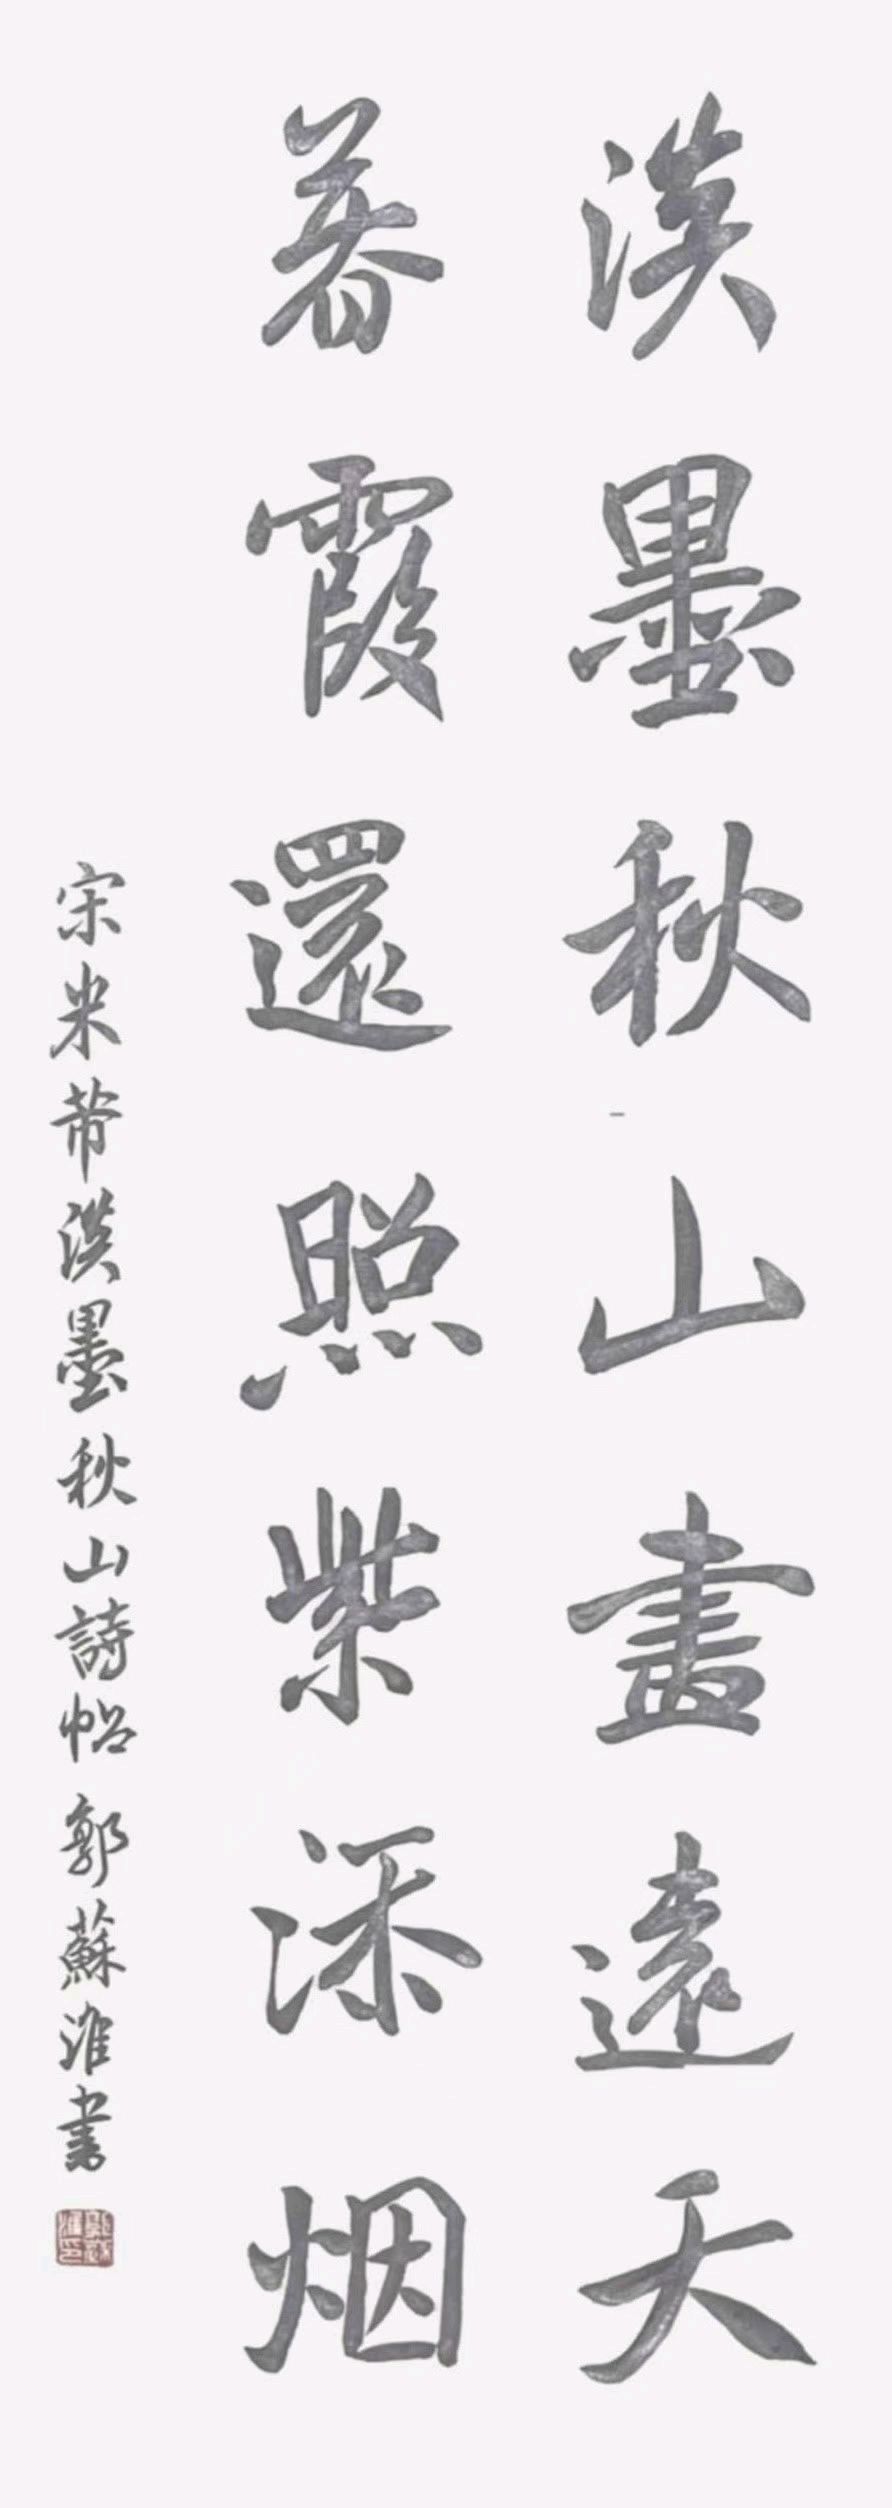 淡墨秋山畫遠天
暮霞還照紫添烟
宋米芾淡墨秋山詩帖郭蘇淮書